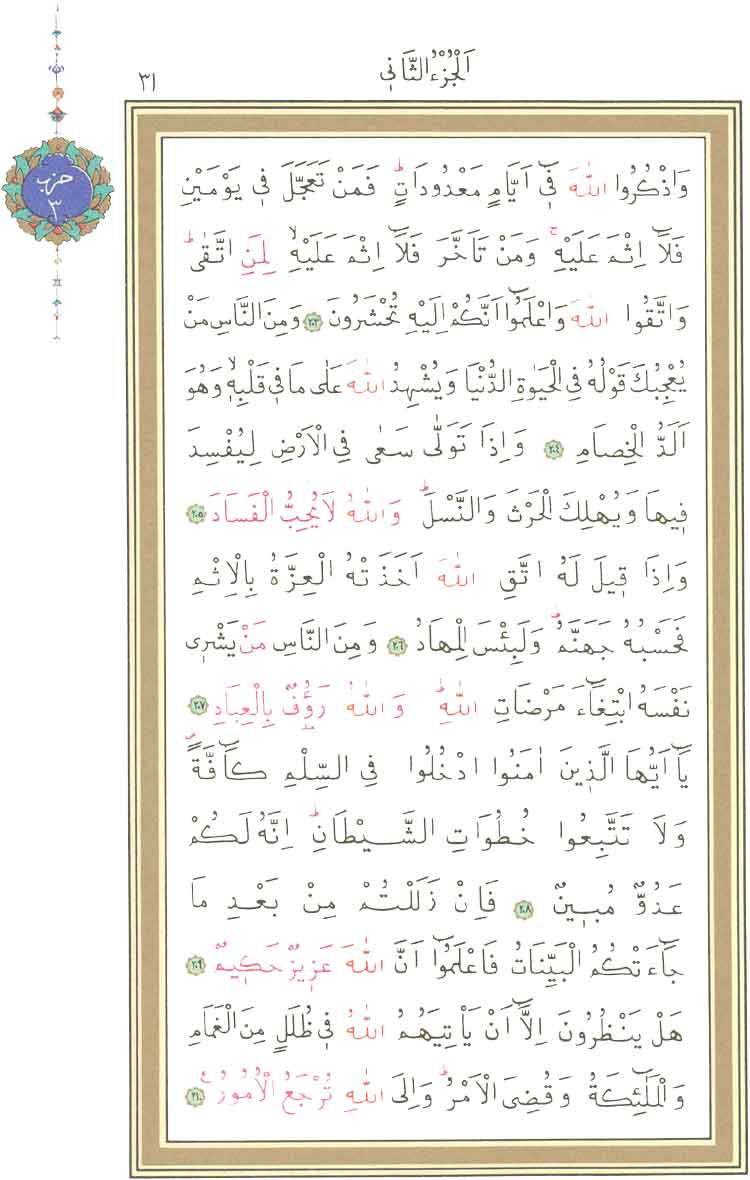 اَلْجُزْءُ الثَّانِي
٣١
حزب
٣
وَاذْكُرُوا اللّٰهَ فٓي اَيَّامٍ مَعْدُودَاتٍۜ فَمَنْ تَعَجَّلَ فٖي يَوْمَيْنِ
فَلَٓا اِثْمَ عَلَيْهِۚ وَمَنْ تَاَخَّرَ فَلَٓا اِثْمَ عَلَيْهِۙ لِمَنِ اتَّقٰىۜ
وَاتَّقُوا اللّٰهَ وَاعْلَمُٓوا اَنَّكُمْ اِلَيْهِ تُحْشَرُونَ ٢٠٣ وَمِنَ النَّاسِ مَنْ
يُعْجِبُكَ قَوْلُهُ فِي الْحَيٰوةِ الدُّنْيَا وَيُشْهِدُ اللّٰهَ عَلٰى مَا فٖي قَلْبِهٖۙ وَهُوَ
اَلَدُّ الْخِصَامِ ٢٠٤ وَاِذَا تَوَلّٰى سَعٰى فِي الْاَرْضِ لِيُفْسِدَ
فٖيهَا وَيُهْلِكَ الْحَرْثَ وَالنَّسْلَۜ وَاللّٰهُ لَا يُحِبُّ الْفَسَادَ ٢٠٥
وَاِذَا قٖيلَ لَهُ اتَّقِ اللّٰهَ اَخَذَتْهُ الْعِزَّةُ بِالْاِثْمِ
فَحَسْبُهُ جَهَنَّمُۜ وَلَبِئْسَ الْمِهَادُ ٢٠٦ وَمِنَ النَّاسِ مَنْ يَشْرٖي
نَفْسَهُ ابْتِغَٓاءَ مَرْضَاتِ اللّٰهِۜ وَاللّٰهُ رَؤُ۫فٌ بِالْعِبَادِ ٢٠٧
يَٓا اَيُّهَا الَّذٖينَ اٰمَنُوا ادْخُلُوا فِي السِّلْمِ كَٓافَّةًۖ
وَلَا تَتَّبِعُوا خُطُوَاتِ الشَّيْطَانِۜ اِنَّهُ لَكُمْ
عَدُوٌّ مُبٖينٌ ٢٠٨ فَاِنْ زَلَلْتُمْ مِنْ بَعْدِ مَا
جَٓاءَتْكُمُ الْبَيِّنَاتُ فَاعْلَمُٓوا اَنَّ اللّٰهَ عَزٖيزٌ حَكٖيمٌ ٢٠٩
هَلْ يَنْظُرُونَ اِلَّٓا اَنْ يَأْتِيَهُمُ اللّٰهُ فٖي ظُلَلٍ مِنَ الْغَمَامِ
وَالْمَلٰٓئِكَةُ وَقُضِيَ الْاَمْرُۜ وَاِلَى اللّٰهِ تُرْجَعُ الْاُمُورُ۟ ٢١٠